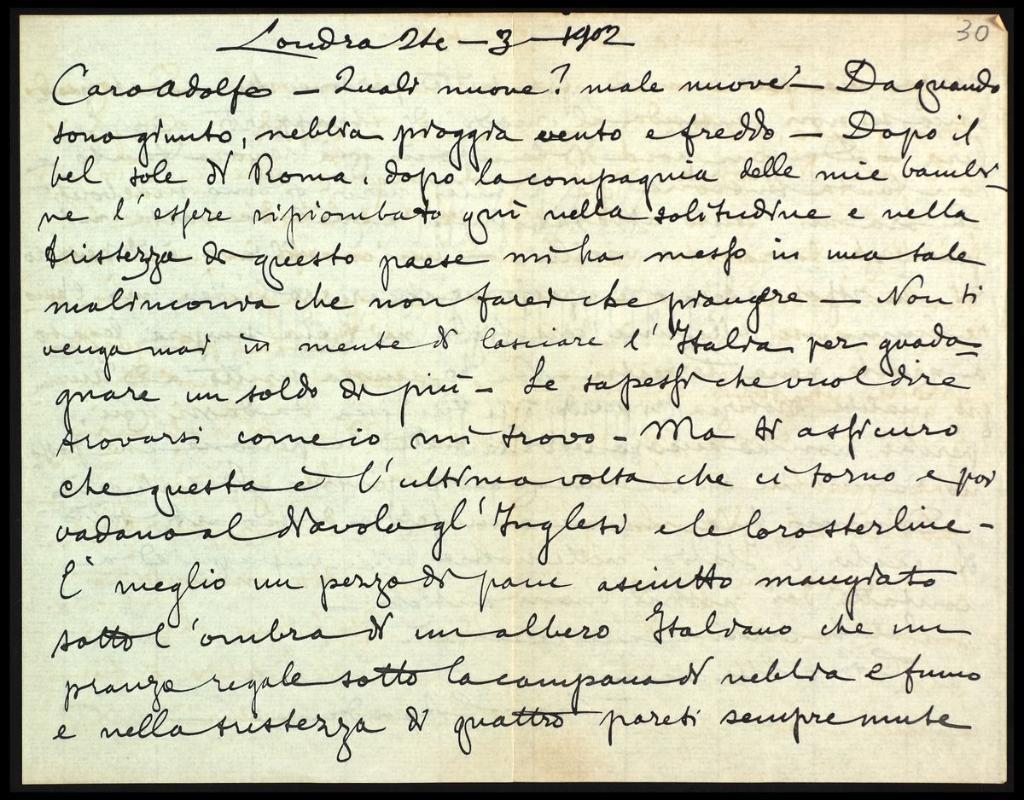 30
Londra 2 - 3 - 1902
Caro Adolfo — Quali nuove? male nuove — Da quando
sono giunto, nebbia pioggia vento e freddo — Dopo il
bel sole di Roma. dopo la compagnia delle mie bambi-
ne l'essere ripiombato qui nella solitudine e nella
tristezza di questo paese mi ha messo in una tale
malinconia che non farei che piangere — Non ti
venga mai in mente di lasciare l'Italia per guada-
gnare un soldo di più - Se sapessi che vuol dire
trovarsi come io mi trovo - Ma ti assicuro
che questa è l'ultima volta che ci torno e poi
vadano al diavolo gl'Inglesi e le loro sterline -
È meglio un pezzo di pane asciutto mangiato
sotto l'ombra di un albero Italiano che un
pranzo regale sotto la campana di nebbia e fumo
e nella tristezza di quattro pareti sempre mute